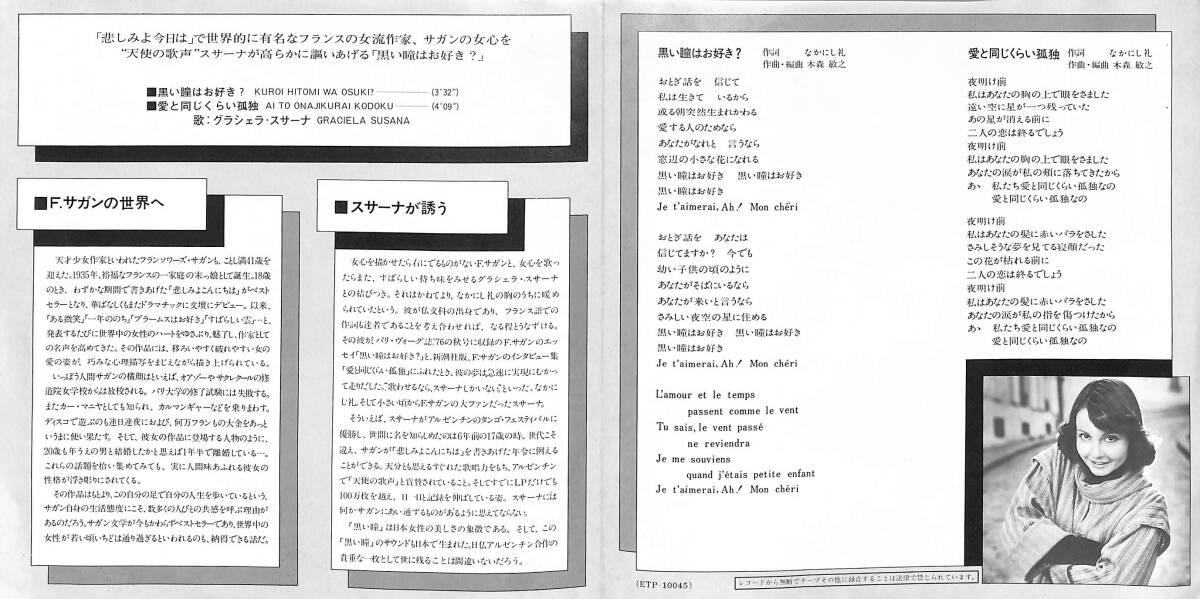 「悲しみよ今日は」で世界的に有名なフランスの女流作家、サガンの女心を
“天使の歌声”スサーナが高らかに謳いあげる「黒い瞳はお好き？」
■黒い瞳はお好き？ KUROI HITOMI WA OSUKI? (3′32″)
■愛と同じくらい孤独 AI TO ONAJIKURAI KODOKU (4′09″)
歌：グラシェラ・スサーナ GRACIELA SUSANA
■F.サガンの世界へ
天才少女作家といわれたフランソワーズ・サガンも、ことし満41歳を
迎えた。1935年、裕福なフランスの一家庭の末っ娘として誕生。18歳
のとき、わずかな期間で書きあげた「悲しみよこんにちは」がベスト
セラーとなり、華ばなしくもまたドラマチックに文壇にデビュー。以来、
「ある微笑」「一年ののち」「ブラームスはお好き」「すばらしい雲」…と、
発表するたびに世界中の女性のハートをゆさぶり、魅了し、作家として
の名声を高めてきた。その作品には、移ろいやすく破れやすい女の
愛の姿が、巧みな心理描写をまじえながら描き上げられている。
いっぽう人間サガンの横顔はといえば、オアゾーやサクレクールの修
道院女学校からは放校される。パリ大学の修了試験には失敗する。
またカー・マニヤとしても知られ、カルマンギャーなどを乗りまわす。
ディスコで遊ぶのも連日連夜におよび、何万フランもの大金をあっと
いうまに使い果たす。そして、彼女の作品に登場する人物のように、
20歳も年うえの男と結婚したかと思えば1年半で離婚している…。
これらの話題を拾い集めてみても、実に人間味あふれる彼女の
性格が浮き彫りにされてくる。
その作品はもとより、この自分の足で自分の人生を歩いているという、
サガン自身の生活態度にこそ、数多くの人びとの共感を呼ぶ理由が
あるのだろう。サガン文学が今もかわらずベストセラーであり、世界中の
女性が若い頃いちどは通り過ぎるといわれるのも、納得できる話だ。
■スサーナが誘う
女心を描かせたら右にでるものがないF.サガンと、女心を歌っ
たらまた、すばらしい持ち味をみせるグラシェラ・スサーナ
との結びつき。それはかねてより、なかにし礼の胸のうちに暖め
られていたという。彼が仏文科の出身であり、フランス語での
作詞も達者であることを考え合わせれば、なる程とうなずける。
その彼が、パリ・ヴォーグ誌'76の秋号に収録のF.サガンのエッ
セイ「黒い瞳はお好き？」と、新潮社版、F.サガンのインタビュー集
「愛と同じくらい孤独」にふれたとき、彼の夢は急速に実現にむかっ
て走りだした。“歌わせるなら、スサーナしかいない”といった、なかに
し礼。そして小さい頃からF.サガンの大ファンだったスサーナ。
そういえば、スサーナがアルゼンチンのタンゴ・フェスティバルに
優勝し、世間に名を知らしめたのは6年前の17歳の時。世代こそ
違え、サガンが「悲しみよこんにちは」を書きあげた年令に例える
ことができる。天分とも思えるすぐれた歌唱力をもち、アルゼンチン
で「天使の歌声」と賞賛されていること。そしてすでにLPだけでも
100万枚を越え、日一日と記録を伸ばしている姿。スサーナには
何かサガンにあい通ずるものがあるように思えてならない。
「黒い瞳」は日本女性の美しさの象徴である。そして、この
「黒い瞳」のサウンドも日本で生まれた。日仏アルゼンチン合作の
貴重な一枚として世に残ることは間違いないだろう。
黒い瞳はお好き？ 作詞 なかにし礼
作曲・編曲 木森 敏之
おとぎ話を 信じて
私は生きて いるから
或る朝突然生まれかわる
愛する人のためなら
あなたがなれと 言うなら
窓辺の小さな花になれる
黒い瞳はお好き 黒い瞳はお好き
黒い瞳はお好き
Je t'aimerai, Ah! Mon chéri
おとぎ話を あなたは
信じてますか？ 今でも
幼い子供の頃のように
あなたがそばにいるなら
あなたが来いと言うなら
さみしい夜空の星に住める
黒い瞳はお好き 黒い瞳はお好き
黒い瞳はお好き
Je t'aimerai, Ah! Mon chéri
L'amour et le temps
passent comme le vent
Tu sais, le vent passé
ne reviendra
Je me souviens
quand j'étais petite enfant
Je t'aimerai, Ah! Mon chéri
愛と同じくらい孤独 作詞 なかにし礼
作曲・編曲 木森 敏之
夜明け前
私はあなたの胸の上で眼をさました
遠い空に星が一つ残っていた
あの星が消える前に
二人の恋は終るでしょう
夜明け前
私はあなたの胸の上で眼をさました
あなたの涙が私の頬に落ちてきたから
あゝ 私たち愛と同じくらい孤独なの
愛と同じくらい孤独なの
夜明け前
私はあなたの髪に赤いバラをさした
さみしそうな夢を見てる寝顔だった
この花が枯れる前に
二人の恋は終るでしょう
夜明け前
私はあなたの髪に赤いバラをさした
あなたの涙が私の指を傷つけたから
あゝ 私たち愛と同じくらい孤独なの
愛と同じくらい孤独なの
(ETP-10045)
レコードから無断でテープその他に録音することは法律で禁じられています。